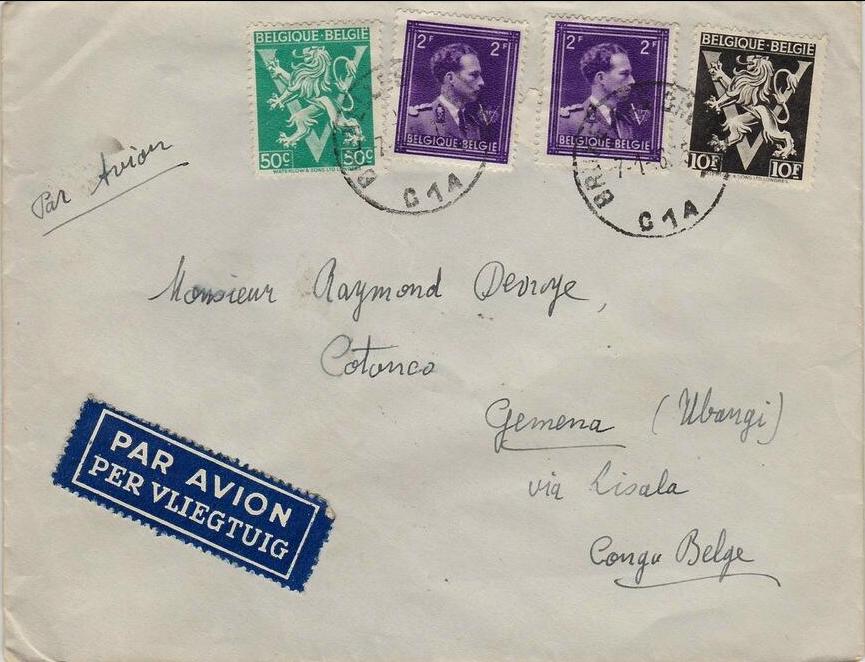 BELGIQUE·BELGIË
50C 50C
WATERLOW & SONS LTD
2F 2F
BELGIQUE·BELGIE
2F 2F
BELGIQUE·BELGIE
BELGIQUE·BELGIË
10F 10F
& SONS LTD LONDRES
C1A
C1A
Par Avion
Monsieur Raymond Devroye,
Cotonco
Gemena (Ubangi)
via Lisala
Congo Belge
PAR AVION
PER VLIEGTUIG